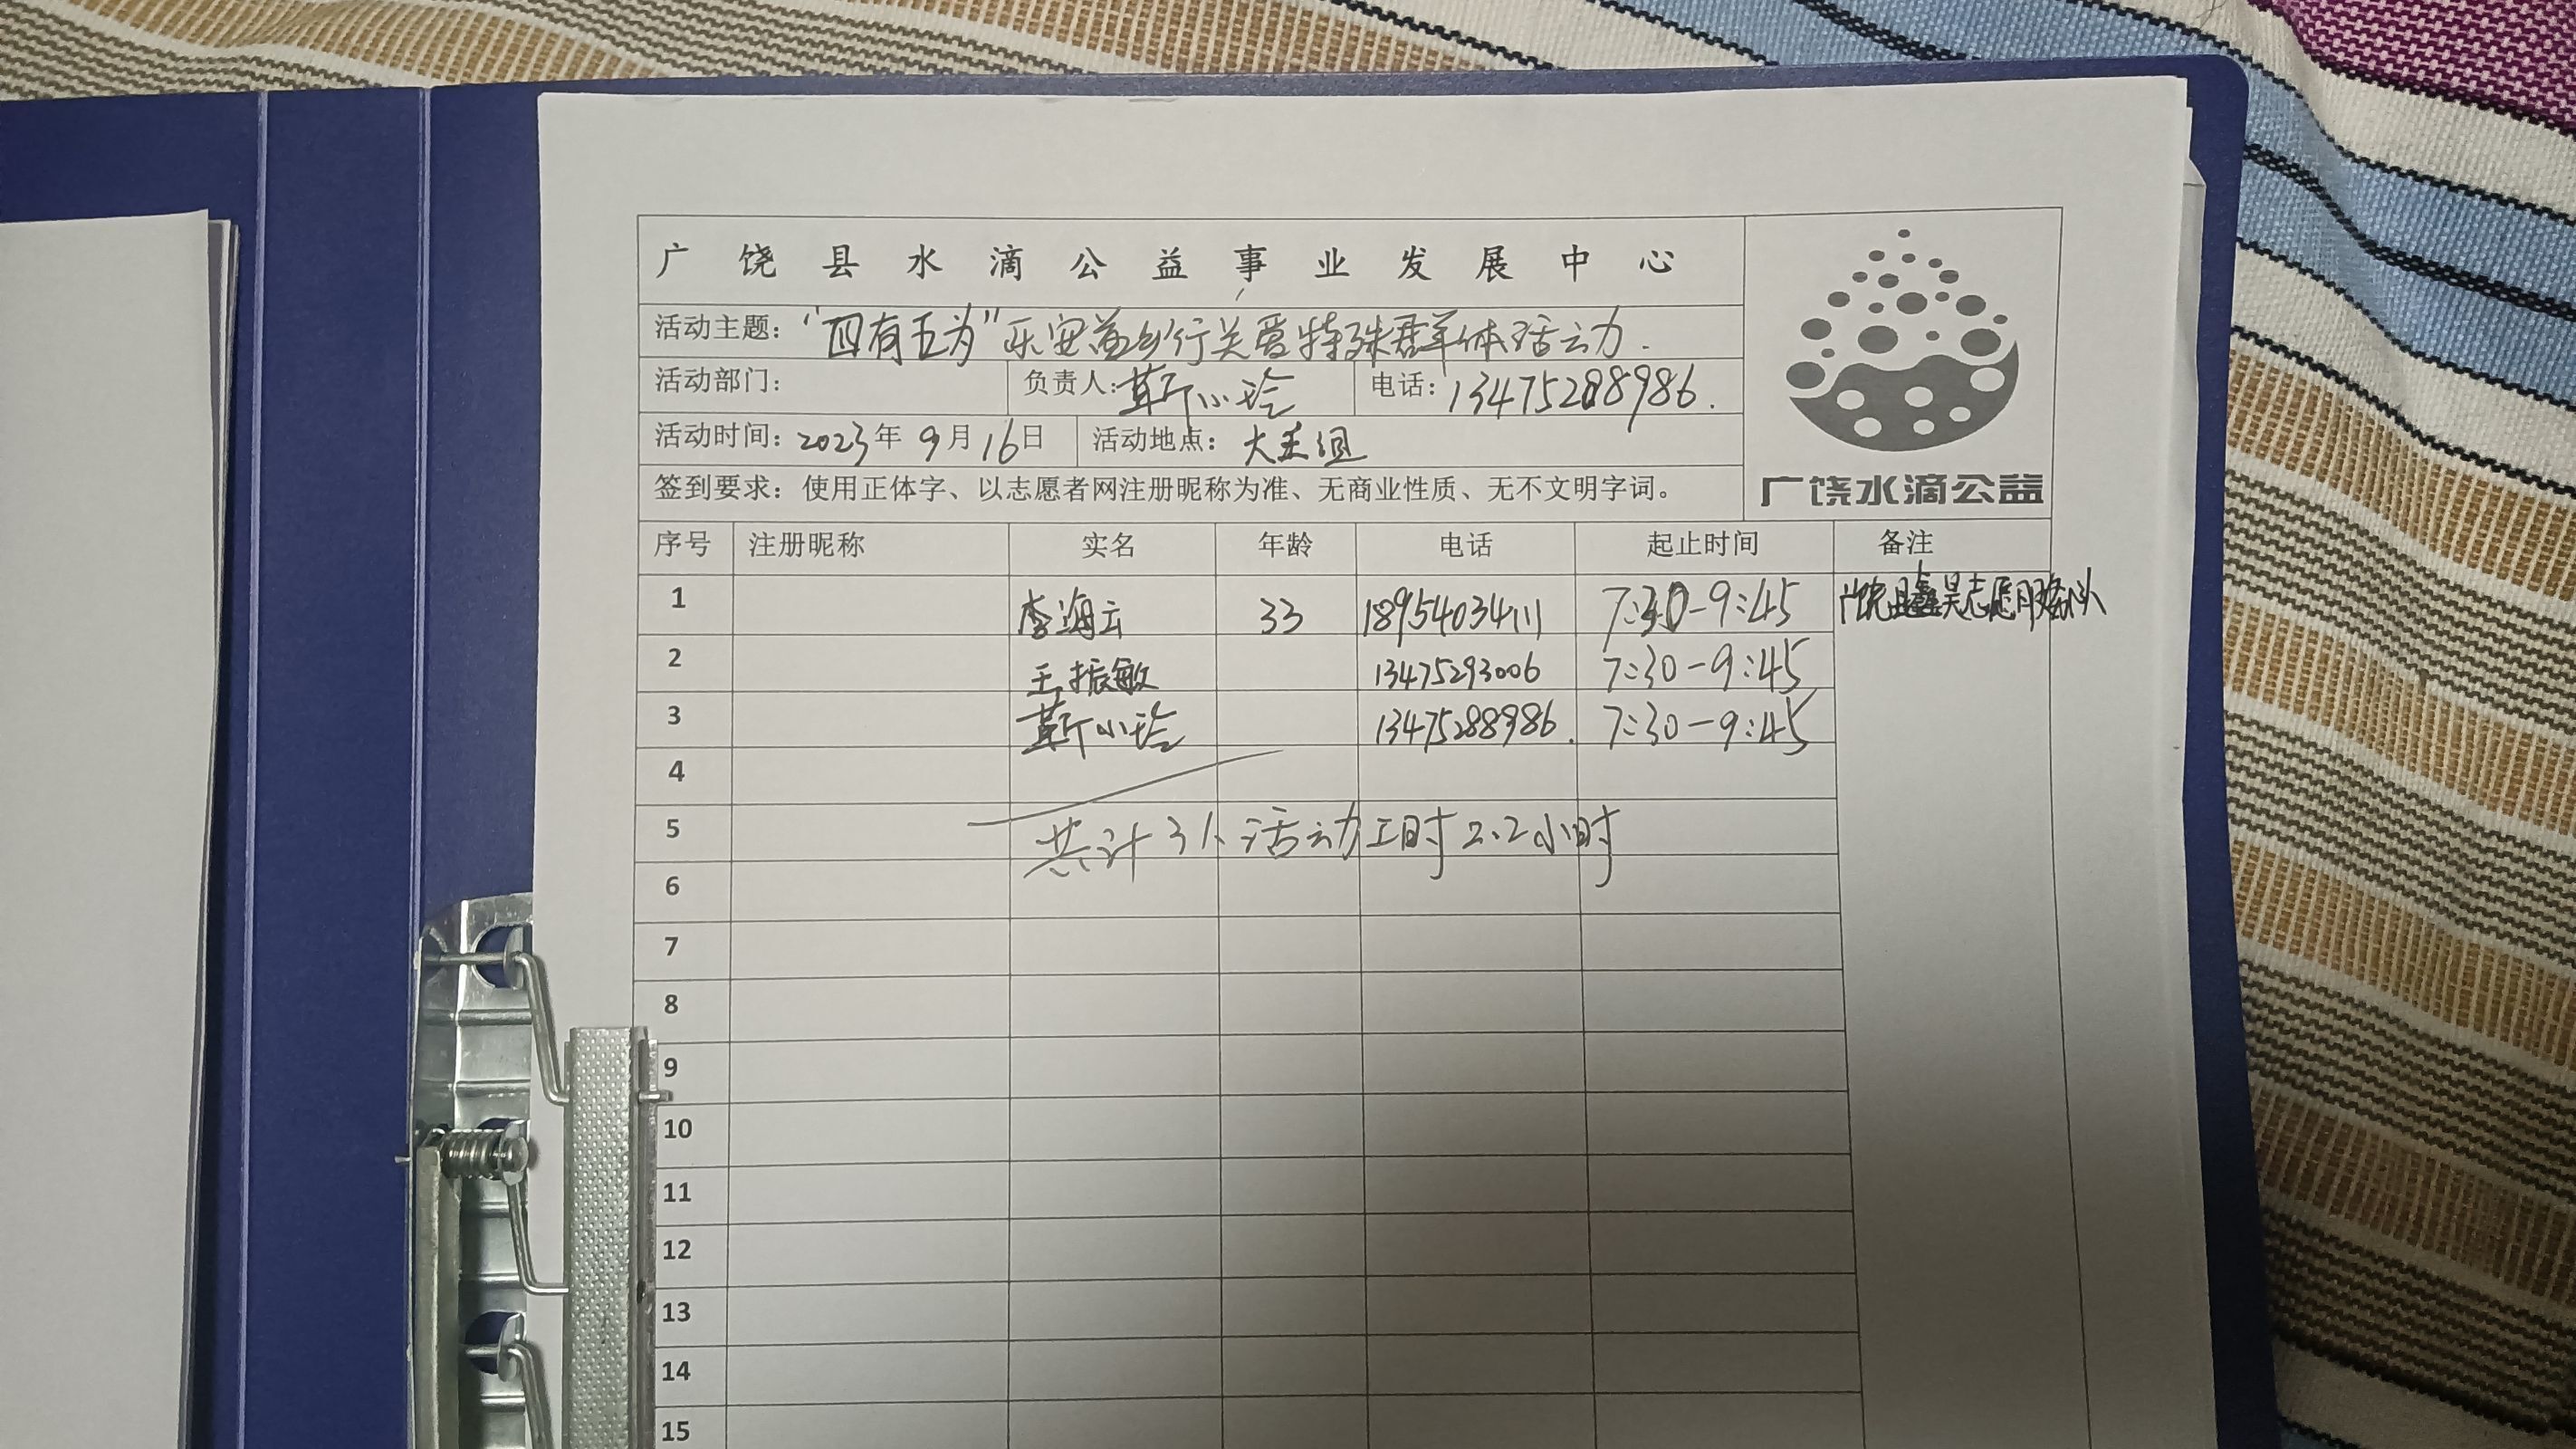 广饶县水滴公益事业发展中心
活动主题：“四有五为”乐安益乡行关爱特殊群体活动.
活动部门： 负责人：靳小玲 电话：13475288986.
活动时间：2023年9月16日 活动地点：大王组
签到要求：使用正体字、以志愿者网注册昵称为准、无商业性质、无不文明字词。
广饶水滴公益
序号 注册昵称 实名 年龄 电话 起止时间 备注
1 李海云 33 18954034111 7:30-9:45 广饶县鑫昊志愿服务队
2 王振敏 13475293006 7:30-9:45
3 靳小玲 13475288986. 7:30-9:45
4
5 共计3人活动工时2.2小时
6
7
8
9
10
11
12
13
14
15